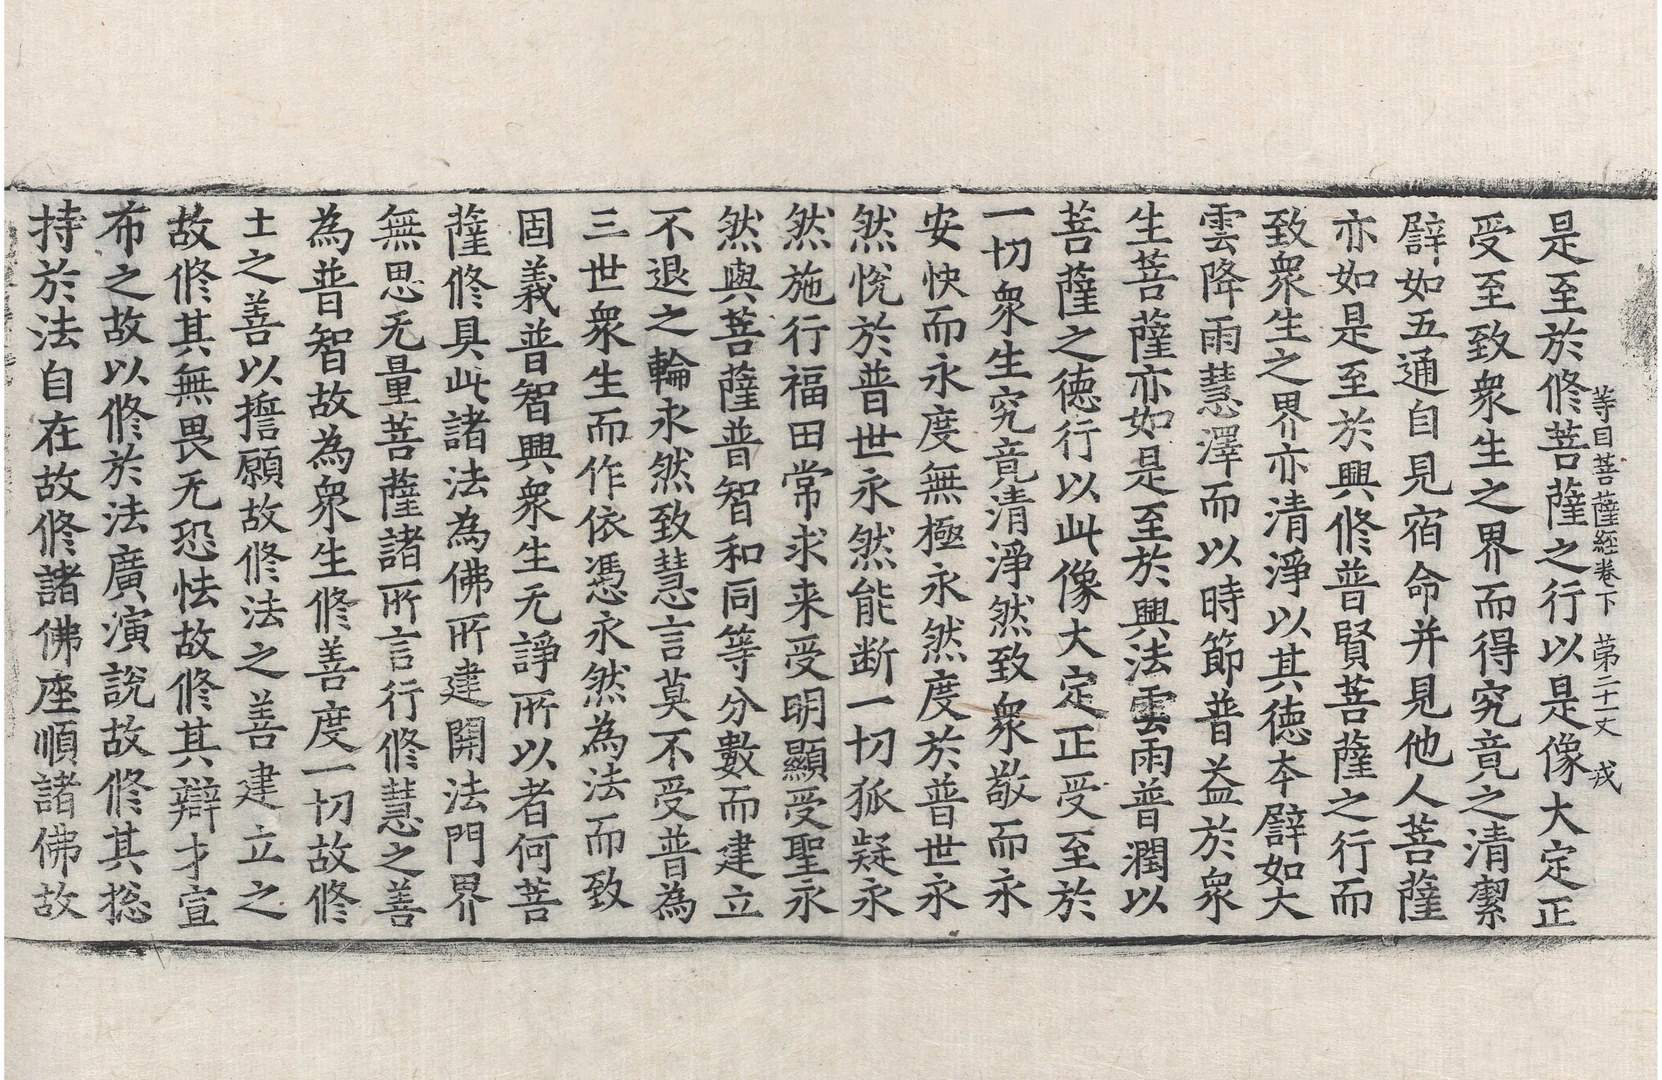 等目菩薩經卷下　第二十一丈　戎
是至於修菩薩之行以是像大定正
受至致衆生之界而得究竟之清潔
譬如五通自見宿命并見他人菩薩
亦如是至於興修普賢菩薩之行而
致衆生之界亦清淨以其德夲譬如大
雲降雨慧澤而以時節普益於衆
生菩薩亦如是至於興法雲雨普潤以
菩薩之德行以此像大定正受至於
一切衆生究竟清淨然致衆敬而永
安快而永度無極永然度於普世永
然悅於普世永然能断一切狐疑永
然施行福田常求来受明顯受聖永
然與菩薩普智和同等分數而建立
不退之輪永然致慧言莫不受普為
三世衆生而作依憑永然為法而致
固義普智興衆生无諍所以者何菩
薩修具此諸法為佛所建開法門界
無思无量菩薩諸所言行修慧之善
為普智故為衆生修善度一切故修
士之善以擔願故修法之善建立之
故修其無畏无恐怯故修其辯才宣
布之故以修於法廣演說故修其捴
持於法自在故修諸佛座順諸佛故